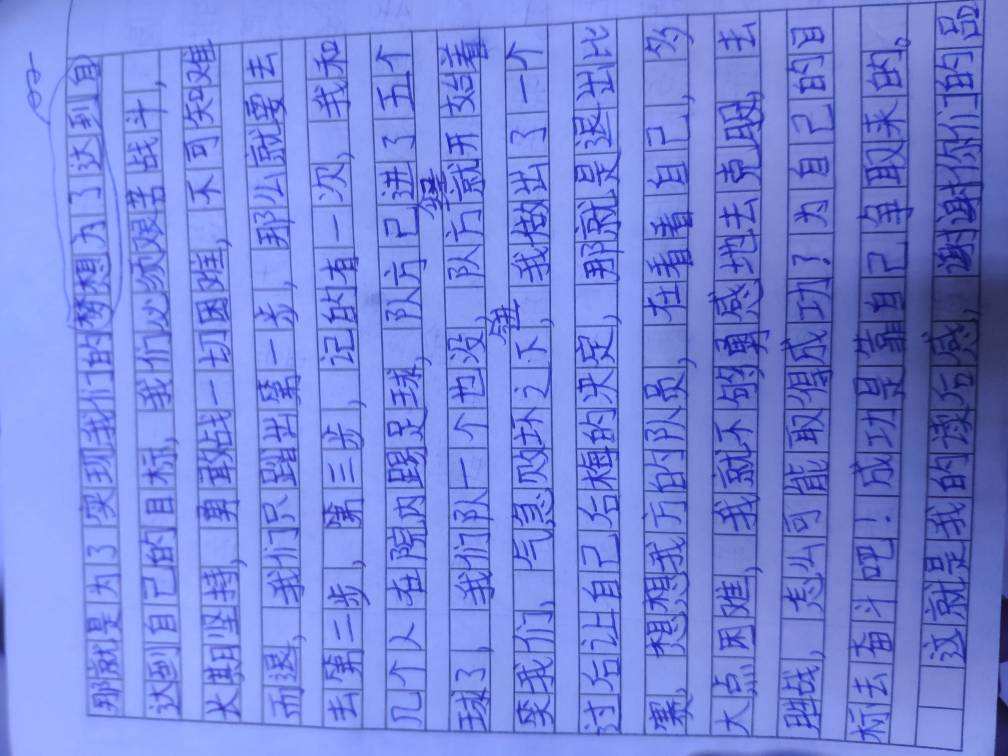 那就是为了实现我们的梦想为了达到自
达到自己的目标，我们必须艰苦战斗，
长期坚持，勇敢战一切困难，不可知难
而退，我们只踏出第一步，那么就要去
去第二步，第三步，记的有一次，我和
几个人在院内踢足球，队方已进了五个
球了，我们队一个也没，队方就开始着
笑我们，气急败坏之下，我做出了一个
过后让自己后梅的决定，那就是退出比
赛，想想我方的队员，在看看自己，多
大点困难，我就不够勇感地去克服，去
挑战，怎么可能取得成功？为自己的目
标去奋斗吧！成功是靠自己争取来的。
这就是我的读后感，谢谢你们的品